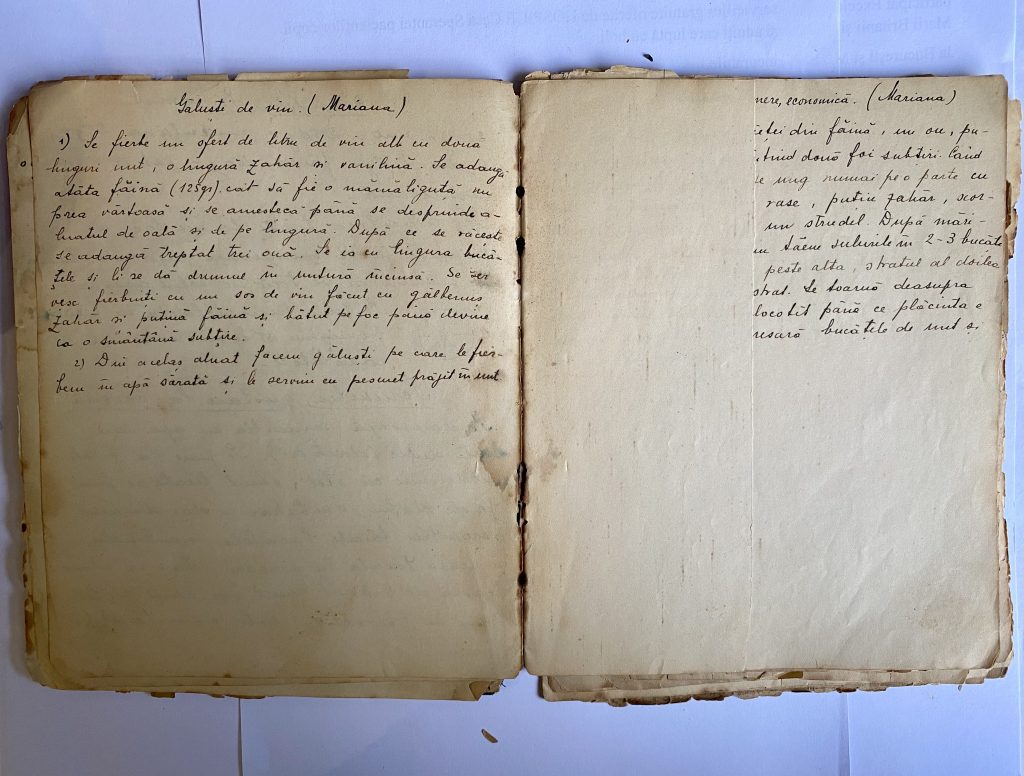 Găluști de vin. (Mariana)
1) Se fierte un sfert de litru de vin alb cu două
linguri unt, o lingură zahăr si vanilină. Se adangă
atâta făină (125gr). cât să fie o mămăliguță nu
prea vârtoasă și se amestecă până se desprinde a-
luatul de oală și de pe lingură. După ce se răcește
se adangă treptat trei ouă. Se ia cu lingura bucă-
țele si li se dă drumul în untură încinsă. Se ser-
vesc fierbinți cu un sos de vin făcut cu gălbenuș
zahăr si puțină făină și bătut pe foc până devine
ca o smântână subțire.
2) Din acelaș aluat facem găluști pe care le fier-
bem în apă sărată și le servim cu pesmet prăjit în unt.
nere, economică. (Mariana)
din făină, un ou, pu-
două foi subțiri. Când
ung numai pe o parte cu
rase, puțin zahăr, scor-
un strudel. După mări-
tăem sulurile în 2-3 bucăți
peste alta, stratul al doilea
strat. Se toarnă deasupra
clocotit până ce plăcinta e
bucățele de unt și